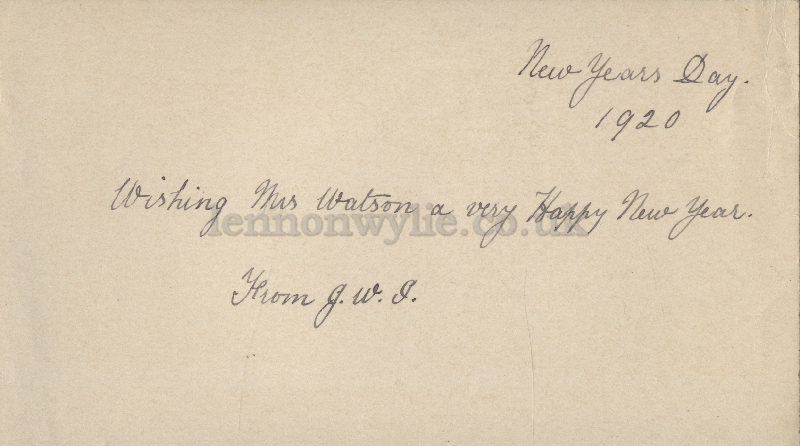 New Years Day.
1920
Wishing Mrs Watson a very Happy New Year.
lennonwylie.co.uk
From J. W. I.